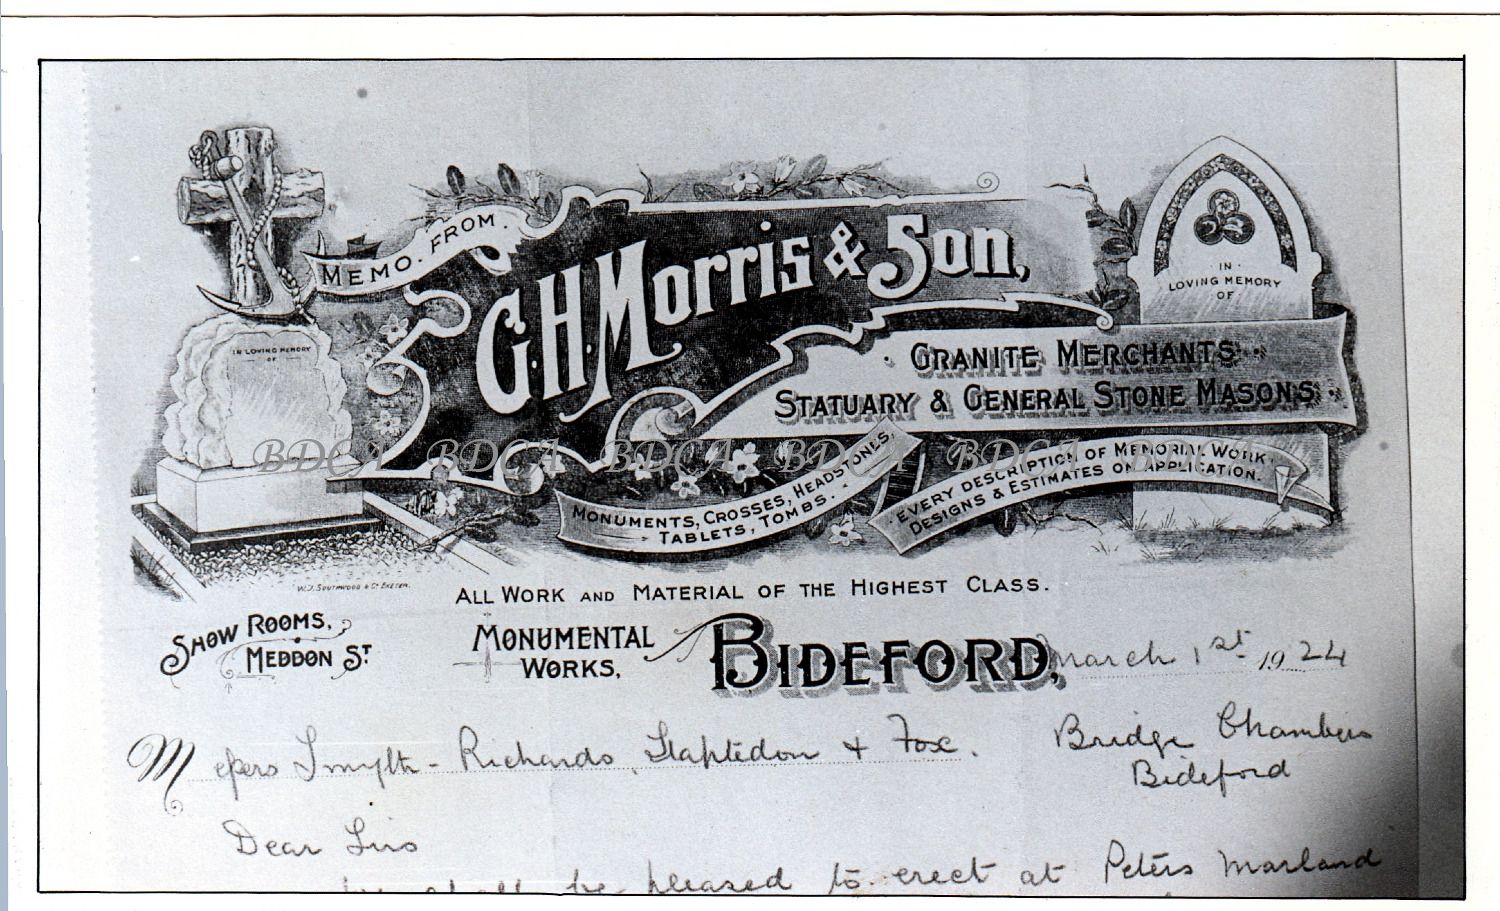 MEMO. FROM.
G.H. Morris & Son,
IN
LOVING MEMORY
OF
IN LOVING MEMORY
OF
GRANITE MERCHANTS
STATUARY & GENERAL STONE MASONS
BDCA BDCA BDCA BDCA BDCA BDCA
MONUMENTS, CROSSES, HEADSTONES,
TABLETS, TOMBS.
EVERY DESCRIPTION OF MEMORIAL WORK.
DESIGNS & ESTIMATES ON APPLICATION.
W.J. SOUTHWOOD & Co EXETER.
ALL WORK AND MATERIAL OF THE HIGHEST CLASS.
SHOW ROOMS,
MEDDON ST
MONUMENTAL
WORKS,
BIDEFORD, March 1st 1924
Messrs Smyth-Richards, Stapledon & Fox. Bridge Chambers
Bideford
Dear Sirs
we shall be pleased to erect at Peters Marland